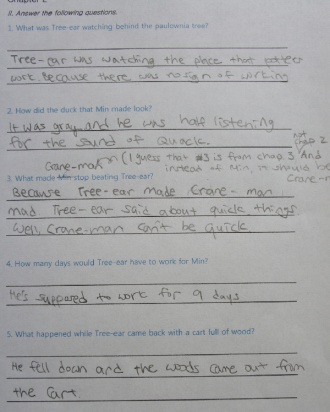 II. Answer the following questions.
1. What was Tree-ear watching behind the paulownia tree?
Tree-ear was watching the place that potter
work. Because there was no sign of wirking
2. How did the duck that Min made look?
It was gray and he was half listening
for the sound of Quack.
not chap 2
(I guess that #3 is from chap 3. And
Crane-man
instead of Min, it should be
Crane-
3. What made Min stop beating Tree-ear?
Because Tree-ear made Crane-man
mad Tree-ear said about quick things
Well, Crane-man can't be quick
4. How many days would Tree-ear have to work for Min?
He's supposed to work for 9 days
5. What happened while Tree-ear came back with a cart full of wood?
He fell down and the woods came out from
the cart.